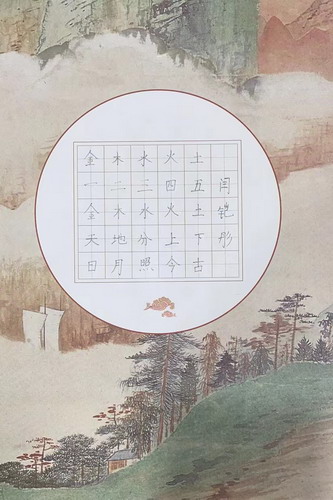 金木水火土
一二三四五
金木水火土
天地分上下
日月照今古
闫铠彤